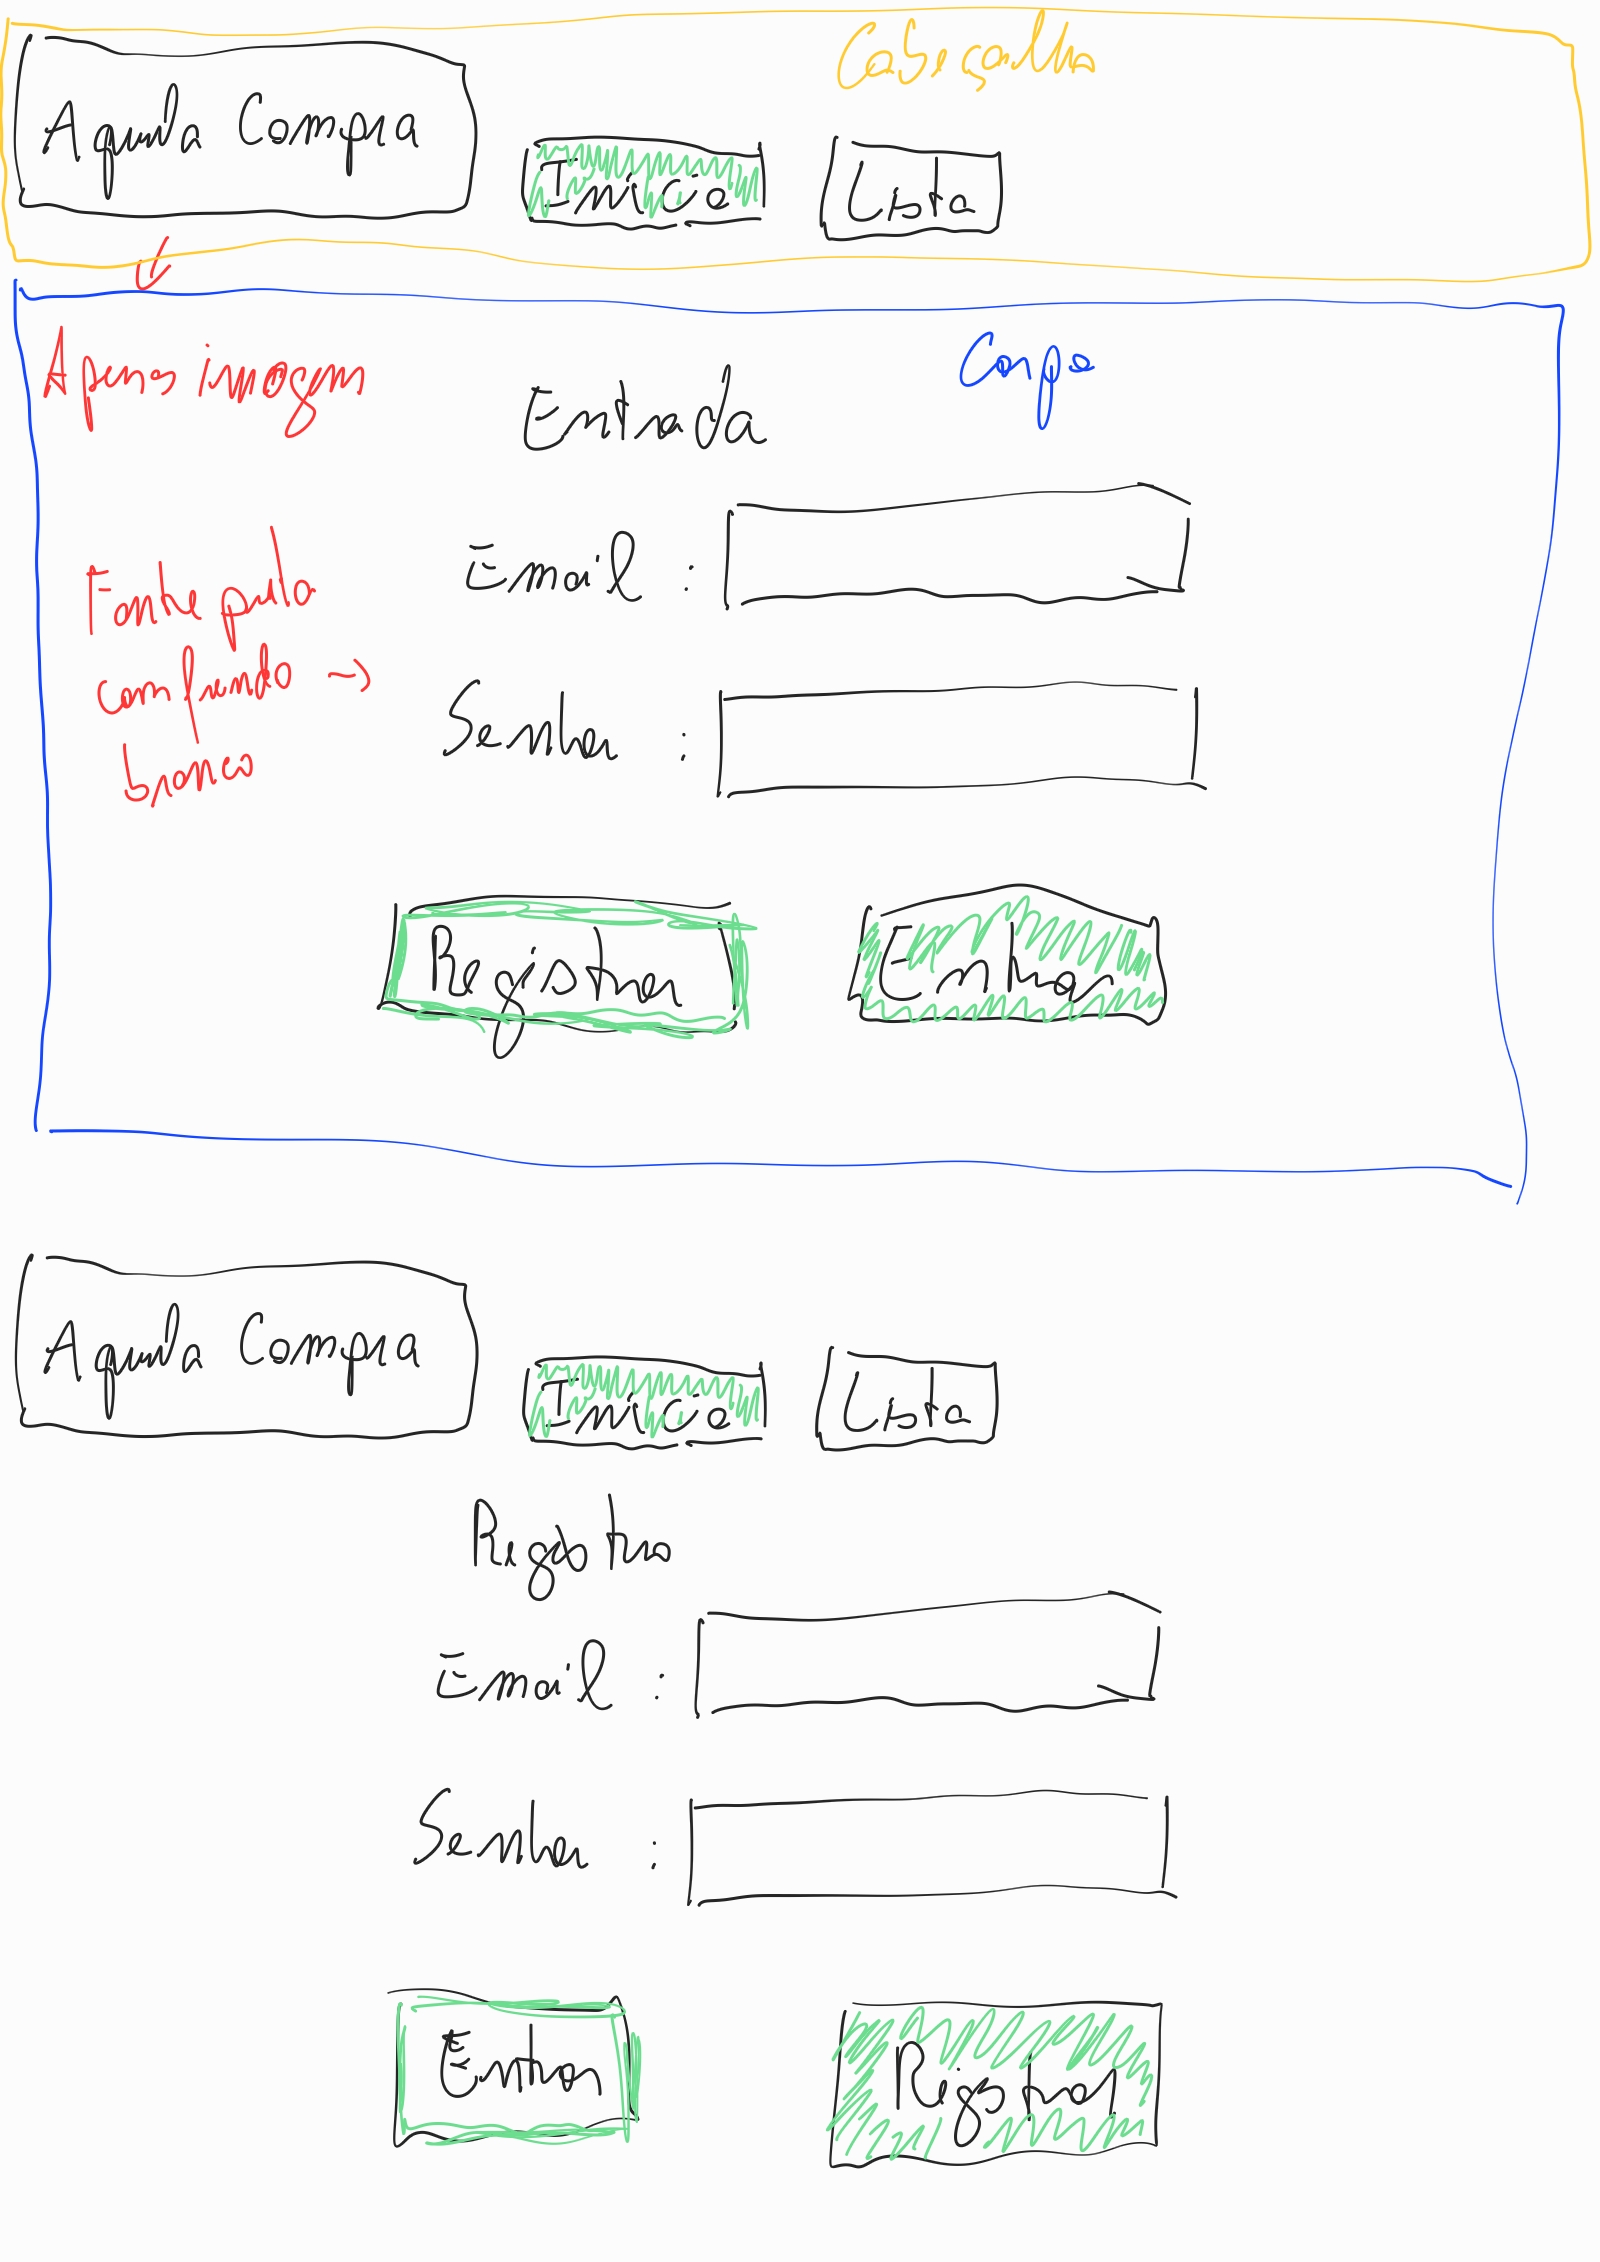 Cabeçalho
Aquila Compra
Início
Lista
Apenas imagem
Corpo
Entrada
Email :
Fonte preta
com fundo →
branco
Senha :
Registrar
Entrar
Aquila Compra
Início
Lista
Registro
Email :
Senha :
Entrar
Registrar